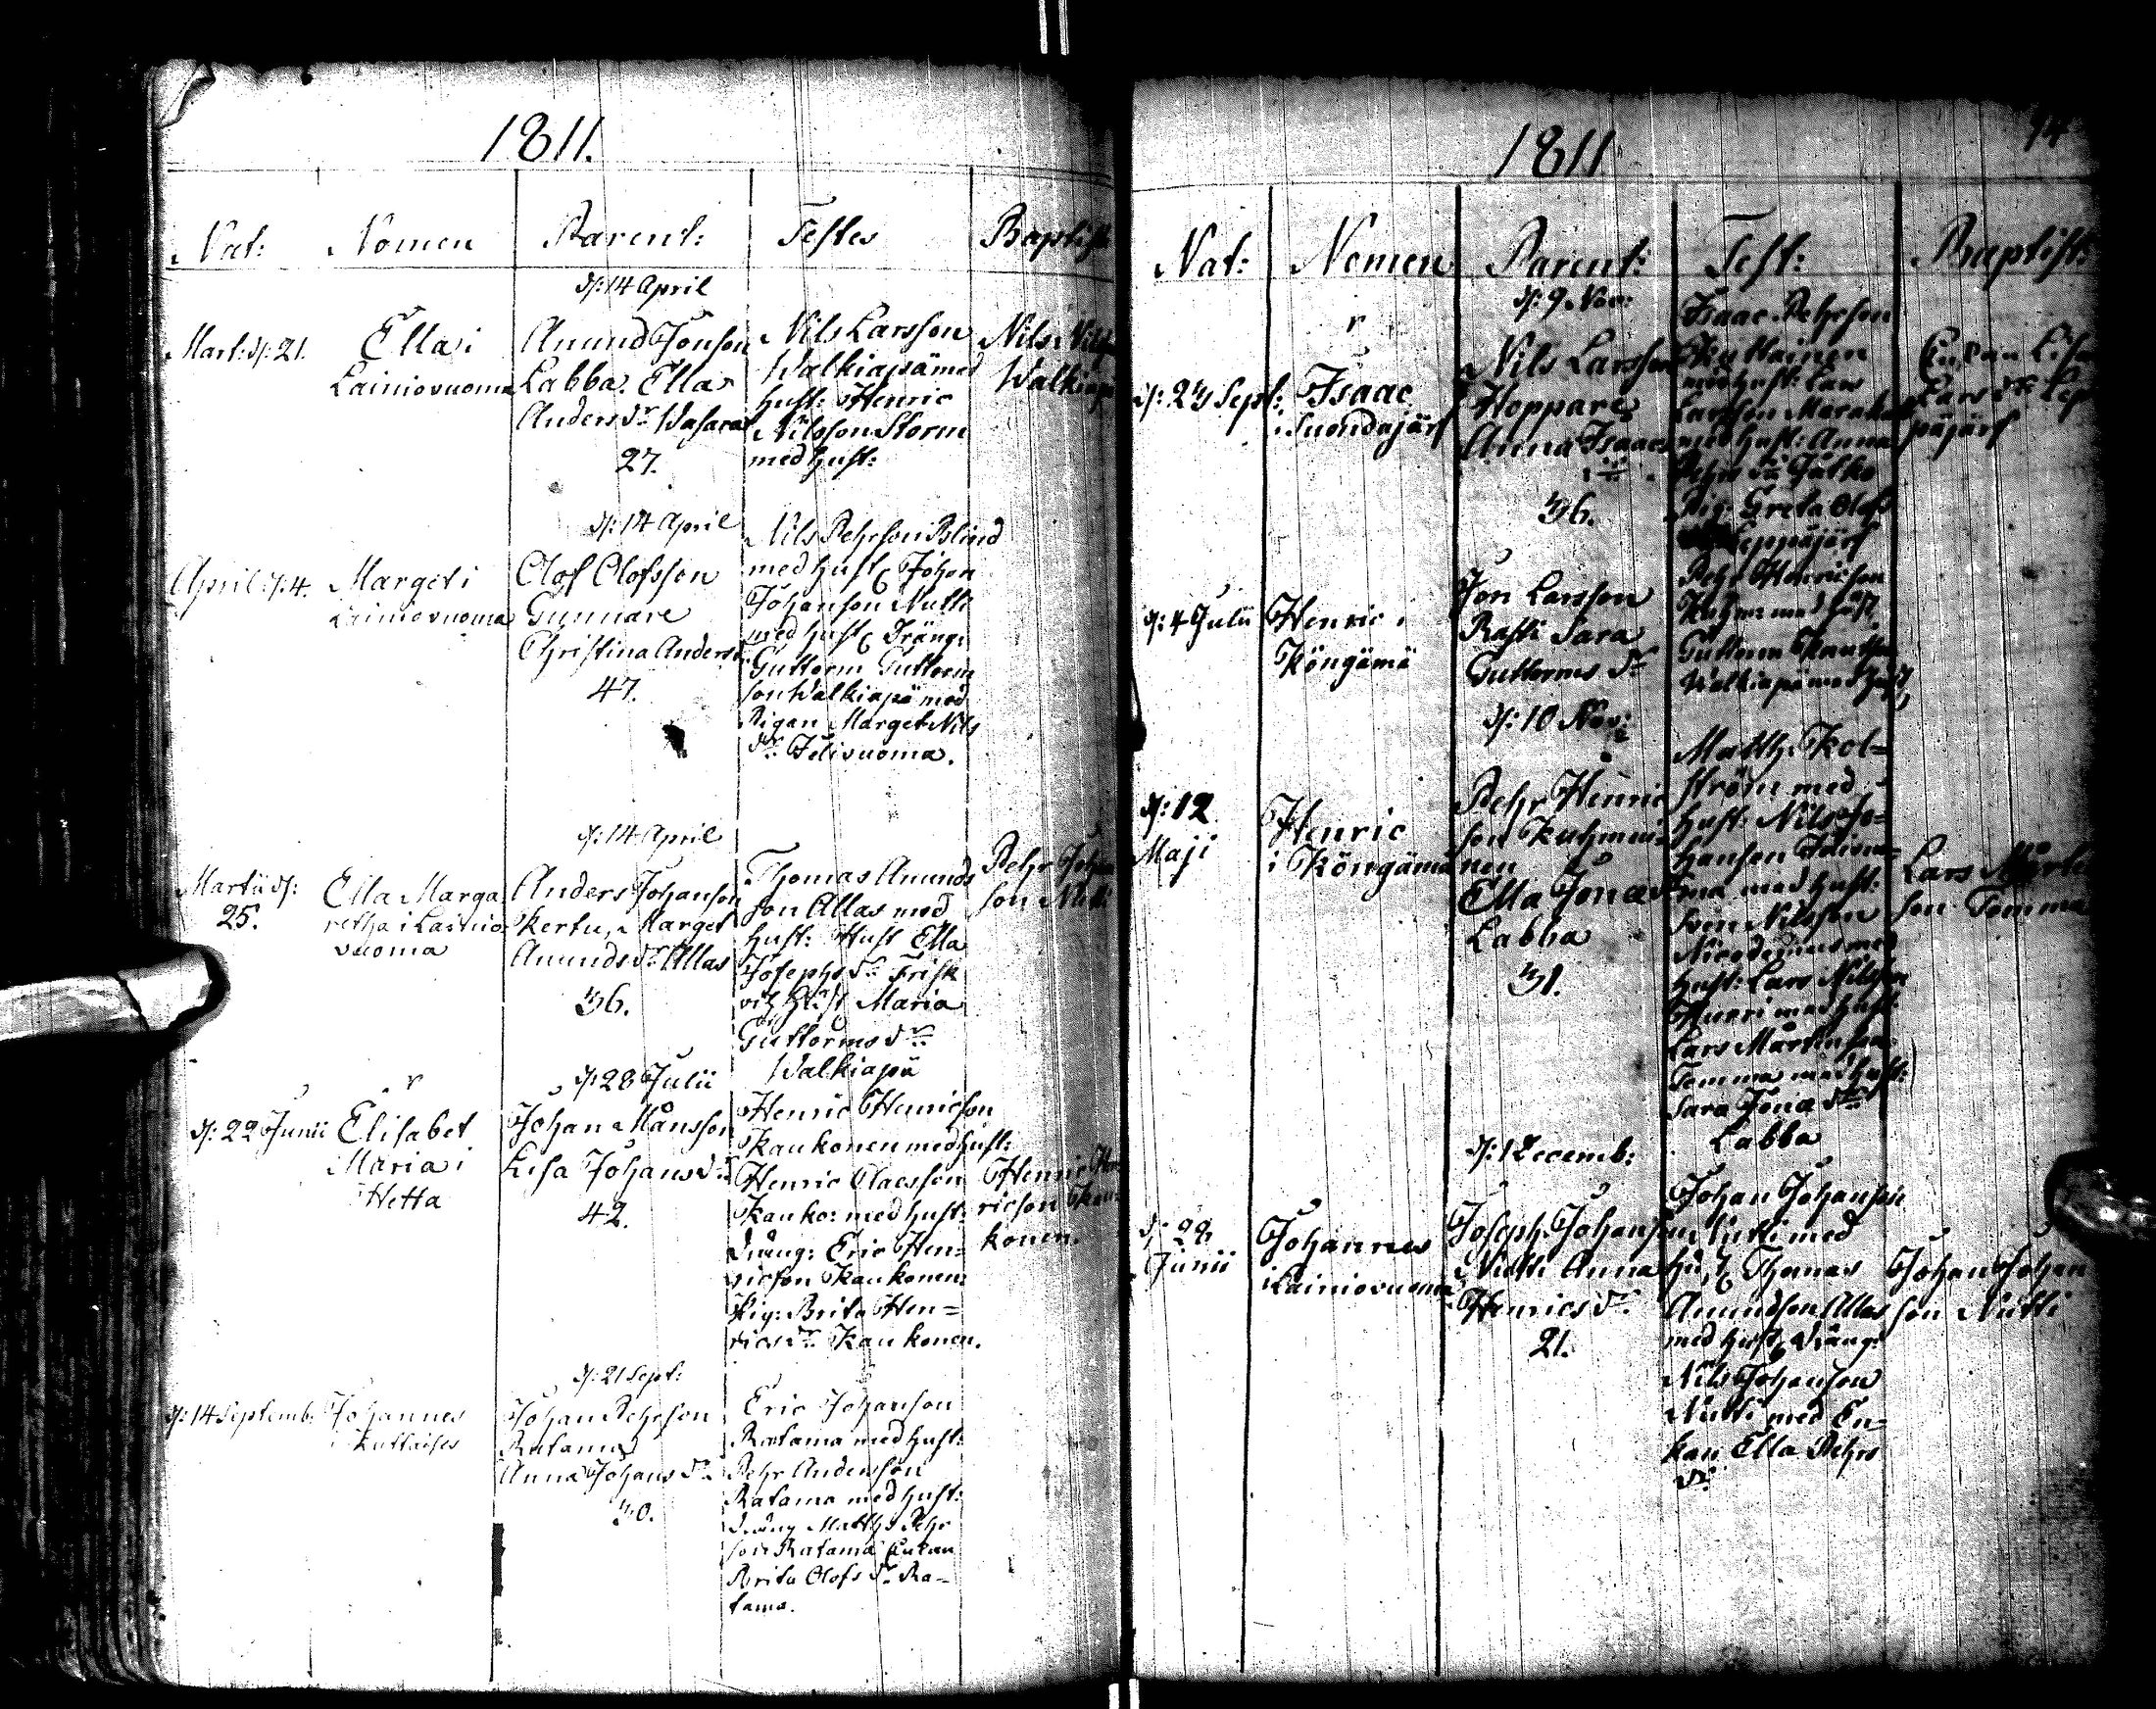 1811.
Nat: Nomen Parent: Testes Baptist
d: 14 April
Mart: d: 21.
Ella i
Lainiovuoma
Amund Jonson
Labba. Ella
Anders dr. Wasara
27.
Nils Larsson
Walkiapä med
hust: Henric
Nilsson Storm
med hust:
Nils Nils
Walkiap
d: 14 April
April: d: 4.
Marget i
Lainiovuoma
Olof Olofsson
Gunnare
Christina Anders
47.
Nils Pehrson Blind
med hust, Johan
Johanson Nutti
med hust, Dräng:
Guttorm Guttorm
son Walkiapä med
Pigan Marget Nils
dr: Jelivuoma.
d: 14 April
Martii d:
25.
Ella Marga
retha i Lainio
vuoma
Anders Johanson
Kertu, Marget
Amunds dr. Allas
36.
Thomas Amunds
son Allas med
hust: Hust Ella
Josephs dr. Frisk
och Hust Maria
Guttorms dr:
Walkiapä
Pehr Johan
son Nutti
d: 28 Julii
d: 22 Junii
Elisabet
Maria i
Hetta
Johan Månsson
Lisa Johans dr:
42.
Henric Henricson
Kaukonen med hust:
Henric Claesson
Kauko: med hust:
dräng: Eric Hen=
ricson Kaukonen
Pig: Brita Hen=
rics dr: Kaukonen.
Henric Hen
ricson Kau
konen.
d: 21 Sept:
d: 14 Septemb:
Johannes
i Kuttaises
Johan Pehrson
Ratama
Anna Johans dr:
30.
Eric Johanson
Ratama med hust:
Pehr Anderson
Ratama med hust:
dräng Matths Pehr
son Ratama Enkan
Brita Olofs dr. Ra=
tama.
1811.
14
Nat: Nomen Parent: Test: Baptist:
d: 9 Nov:
d: 23 Sept:
Isaac
i Suondajärf
Nils Larsson
Hoppare
Anna Isaacs
dr:
36.
Isaac Pehrson
Kuttainen
med hust: Lars
Larsson Marakatt
med hust: Anna
Pehrs dr: Jatko
Pig: Greta Olofs
Leppäjärf
Enkan Lisa
Lars dr: Lep
päjärf
d: 4 Julii
Henric i
Köngämä
Jon Larsson
Rasti Sara
Guttorms dr
Pehr Henricson
Kuhmu med hust,
Guttorm
Walkiapä med hust,
d: 10 Nov:
d: 12
Maji
Henric
i Köngämä
Pehr Henric
son Kuhmui=
nen
Ella Jonæ dr
Labba
31.
Matth: Kol=
ström med
hust: Nils Jo=
hanson Idivuo=
ma med hust:
Sven Nilsson
Nicodemus med
hust: Lars Nilsson
Hurri med hust:
Lars Mårtenson
Tomma med hust:
Sara Jonæ dr:
Labba
Lars Mårten
son Tomma
d: 1 Decemb:
d: 22
Junii
Johannes
i Lainiovuoma
Joseph Johanson
Nutti Anna
Henrics dr.
21.
Johan Johanson
Nutti med
hust, Thomas
Amundson Allas
med hust, dräng:
Nils Johanson
Nutti med En=
kan Ella Pehrs
dr:
Johan Johan
son Nutti